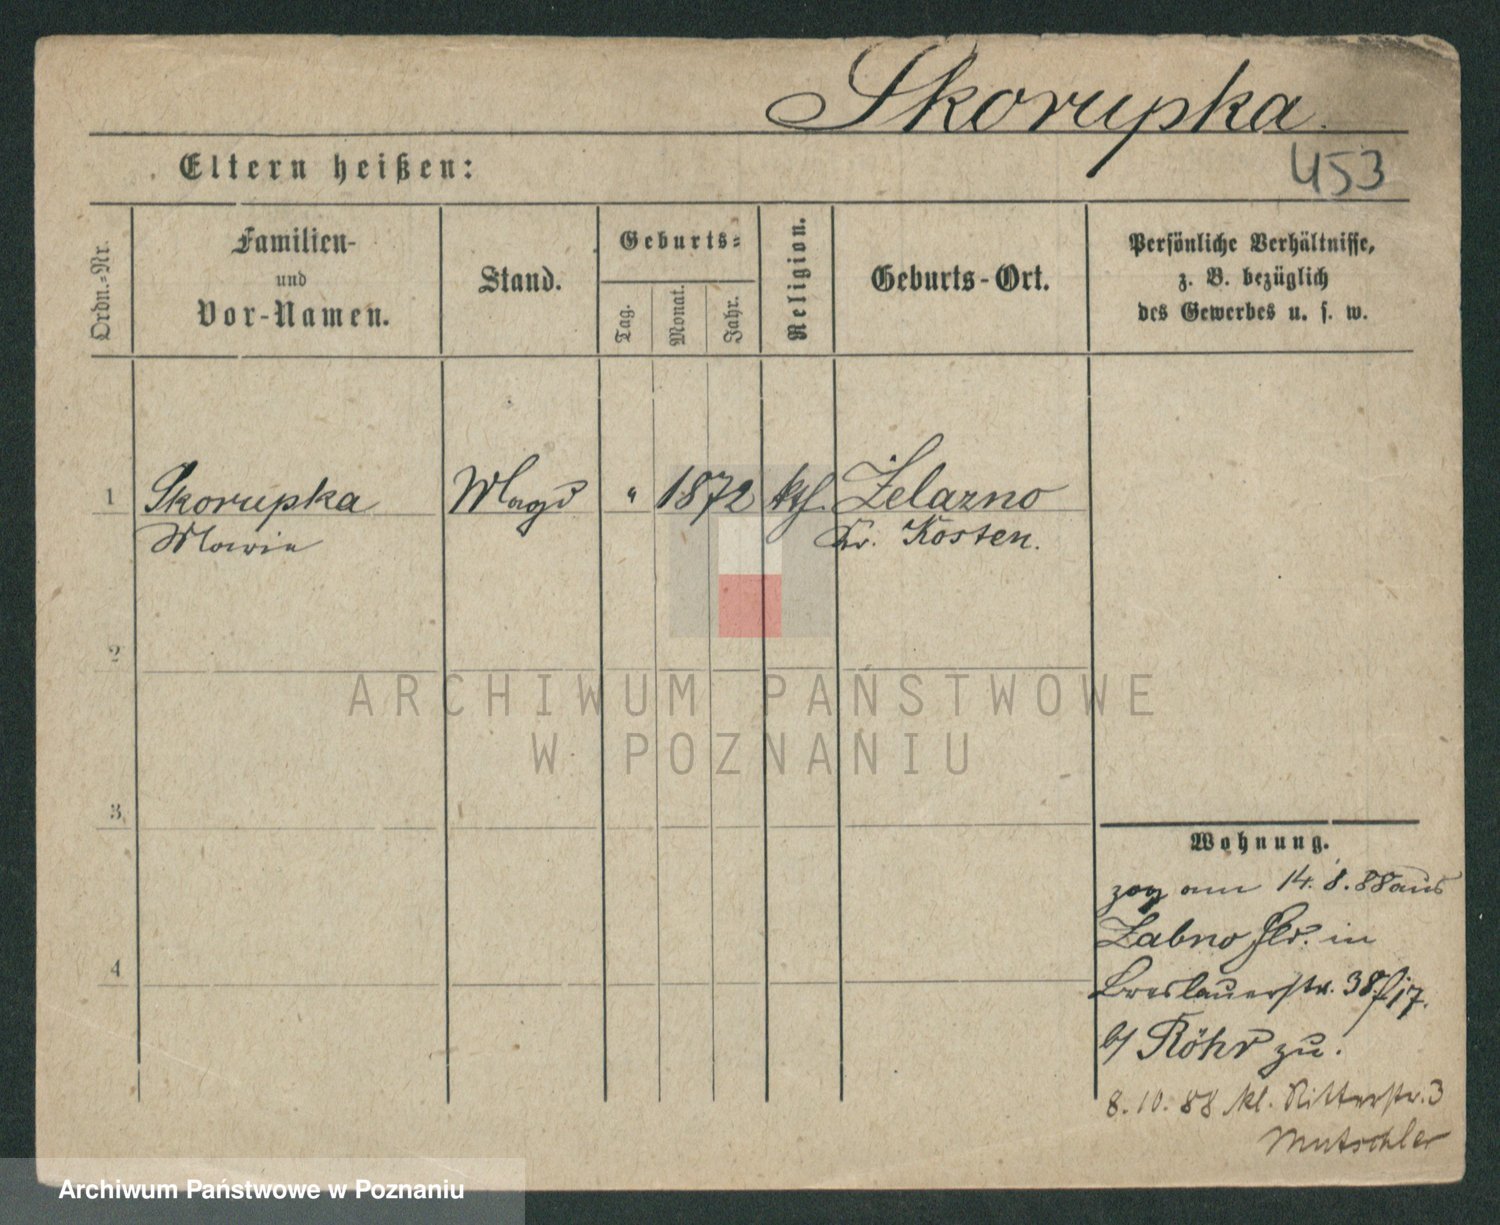 Skorupka.
Eltern heißen:
453
Ordn.-Nr.
Familien-
und
Vor-Namen.
Stand.
Geburts-
Tag.
Monat.
Jahr.
Religion.
Geburts-Ort.
Persönliche Verhältnisse,
z. B. bezüglich
des Gewerbes u. s. w.
1 Skorupka Magd " 1872 kth. Żelazno
Marie Kr. Kosten.
2
3
4
Wohnung.
zog am 14. 8. 88 aus
Zabno in
Breslauerstr. 38/17.
b/ Röhr zu.
8. 10. 88 kl. Ritterstr. 3
Mutschler
ARCHIWUM PAŃSTWOWE
W POZNANIU
Archiwum Państwowe w Poznaniu